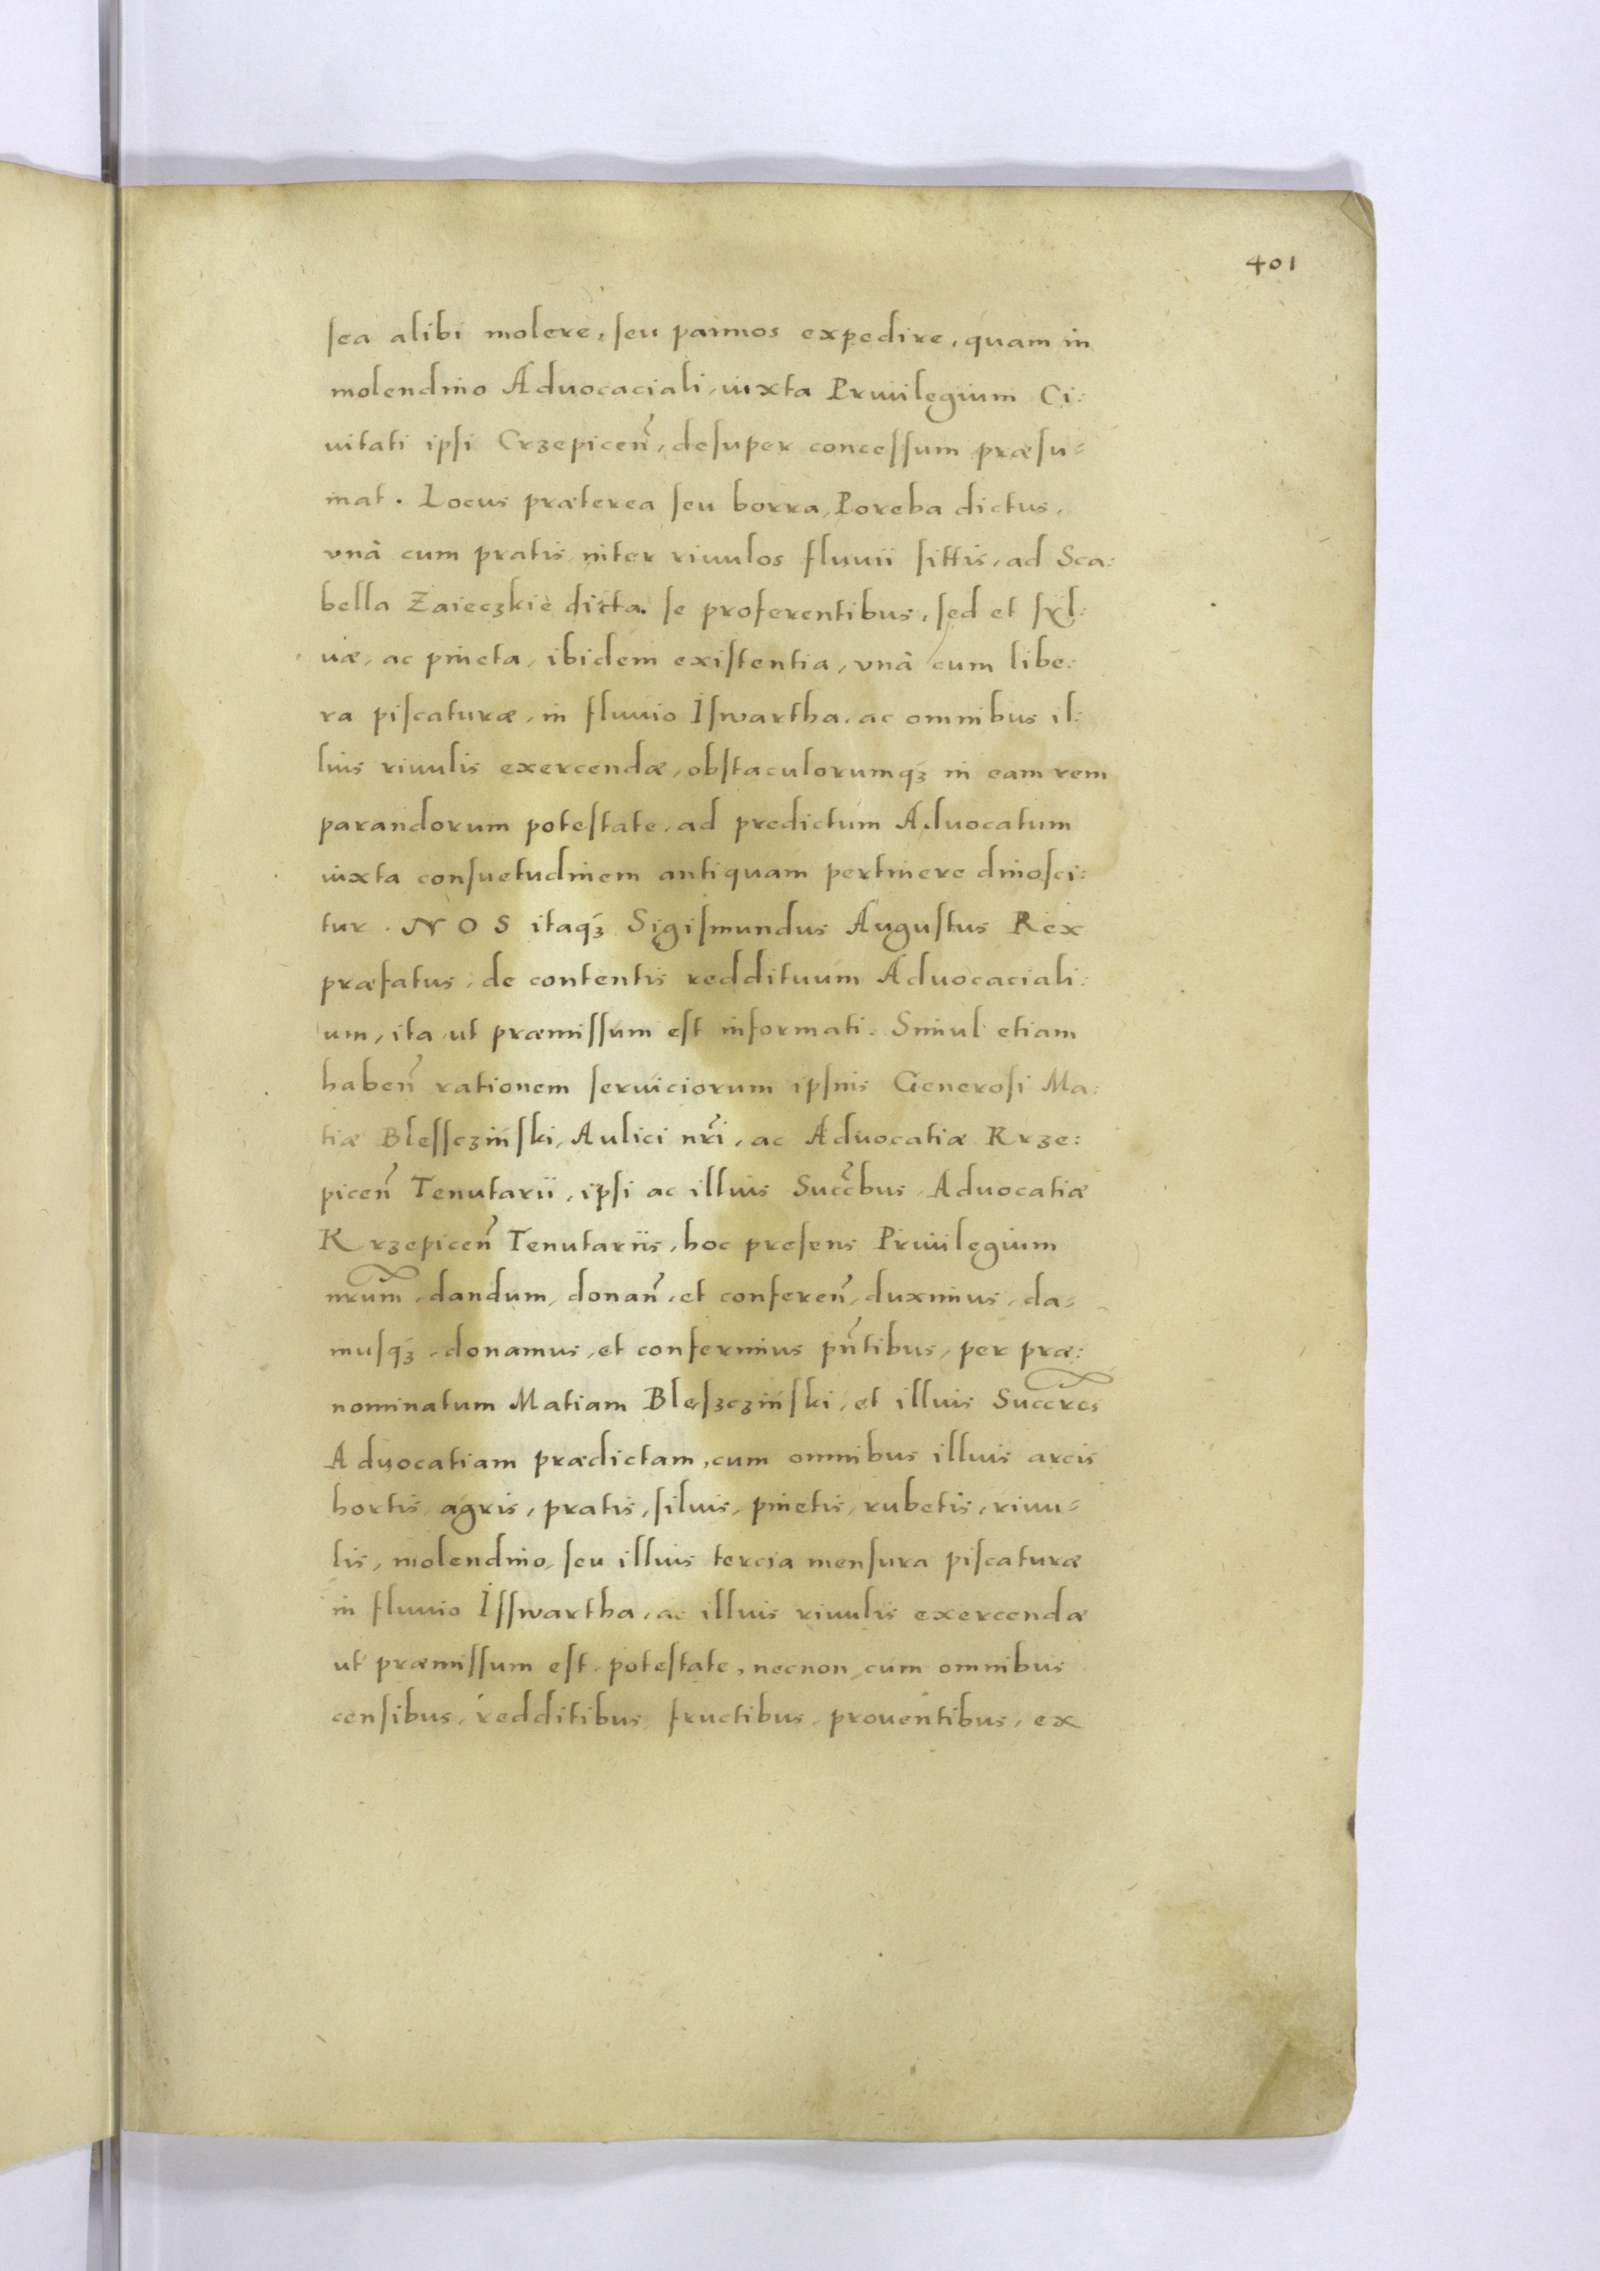 401
sea alibi molere, seu pannos expedire, quam in
molendino Aduocaciali, iuxta Priuilegium Ci:
uitati ipsi Crzepiceñ, desuper concessum præsu-
mat. Locus præterea seu borra, Poreba dictus,
vnâ cum pratis inter riuulos fluuii sittis, ad Sca:
bella Zaieczkie dicta. se proferentibus, sed et syl:
uæ, ac pineta, ibidem existentia, vnâ cum libe:
ra piscaturæ, in fluuio Iswartha, ac omnibus il:
lius riuulis exercendæ, obstaculorumqʒ in eam rem
parandorum potestate, ad predictum Aduocatum
iuxta consuetudinem antiquam pertinere dinosci:
tur. NOS itaqʒ Sigismundus Augustus Rex
præfatus, de contentis reddituum Aduocaciali:
um, ita ut præmissum est informati. Simul etiam
habeñ rationem seruiciorum ipsius Generosi Ma:
tiæ Blessczinski, Aulici nr̃i, ac Aduocatiæ Krze:
piceñ Tenutarii, ipsi ac illius Succ̃bus, Aduocatiæ
Krzepiceñ Tenutariis, hoc presens Priuilegium
nrum̃, dandum, donañ, et confereñ, duximus, da-
musqʒ, donamus, et conferimus pñtibus, per præ:
nominatum Matiam Bleszczinski, et illius Succres̃
Aduocatiam prædictam, cum omnibus illius arcis
hortis, agris, pratis, siluis, pinetis, rubetis, riuu-
lis, molendino, seu illius tercia mensura piscaturæ
in fluuio Isswartha, ac illius riuulis exercendæ
ut præmissum est, potestate, necnon cum omnibus
censibus, redditibus, fructibus, prouentibus, ex